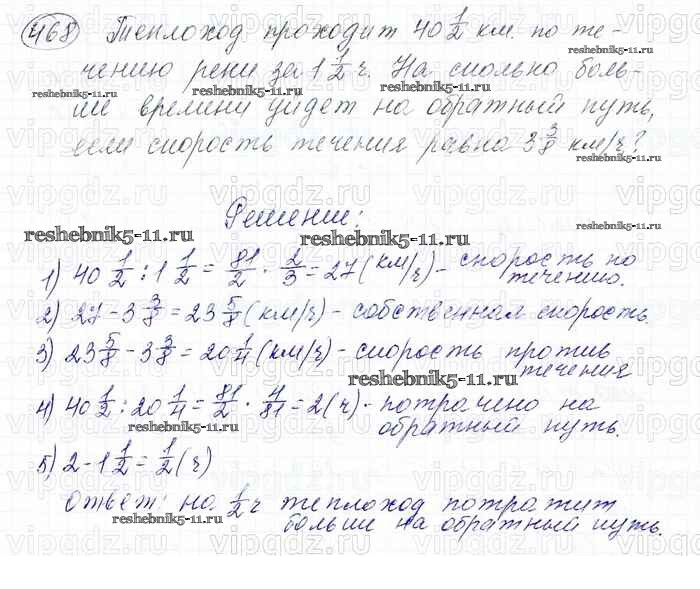 468 Теплоход проходит 40 1/2 км. по те-
чению реки за 1 1/2 ч. На сколько боль-
ше времени уйдет на обратный путь,
если скорость течения равна 3 3/8 км/ч?
Решение:
1) 40 1/2 : 1 1/2 = 81/2 · 2/3 = 27 (км/ч) - скорость по
течению.
2) 27 - 3 3/8 = 23 5/8 (км/ч) - собственная скорость.
3) 23 5/8 - 3 3/8 = 20 1/4 (км/ч) - скорость против
течения
4) 40 1/2 : 20 1/4 = 81/2 · 4/81 = 2 (ч) - потрачено на
обратный путь.
5) 2 - 1 1/2 = 1/2 (ч)
ответ: на 1/2 ч теплоход потратит
больше на обратный путь.
reshebnik5-11.ru
vipgdz.ru